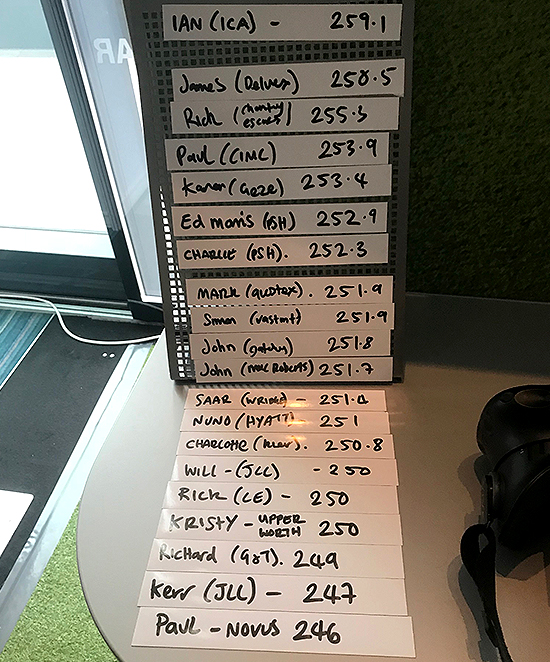 AR
IAN (ICA) - 259.1
James (Delvex) 258.5
Rich (hanty escues) 255.3
Paul (CIMC) 253.9
Karen (Geze) 253.4
Ed morris (PSH) 252.9
CHARLIE (PSH). 252.3
MARK (quotax). 251.9
Simon (vastint) 251.9
John (gatwy) 251.8
John (mac Roberts) 251.7
SAAR - 251.
NUNO (HYATT) - 251
CHARLOTTE (Kier). 250.8
WILL - (JLL) - 250
RICK (LE) - 250
KRISTY - UPPER WORTH 250
Richard (G&T). 249
Kerr (JLL) - 247
Paul - NOVUS 246